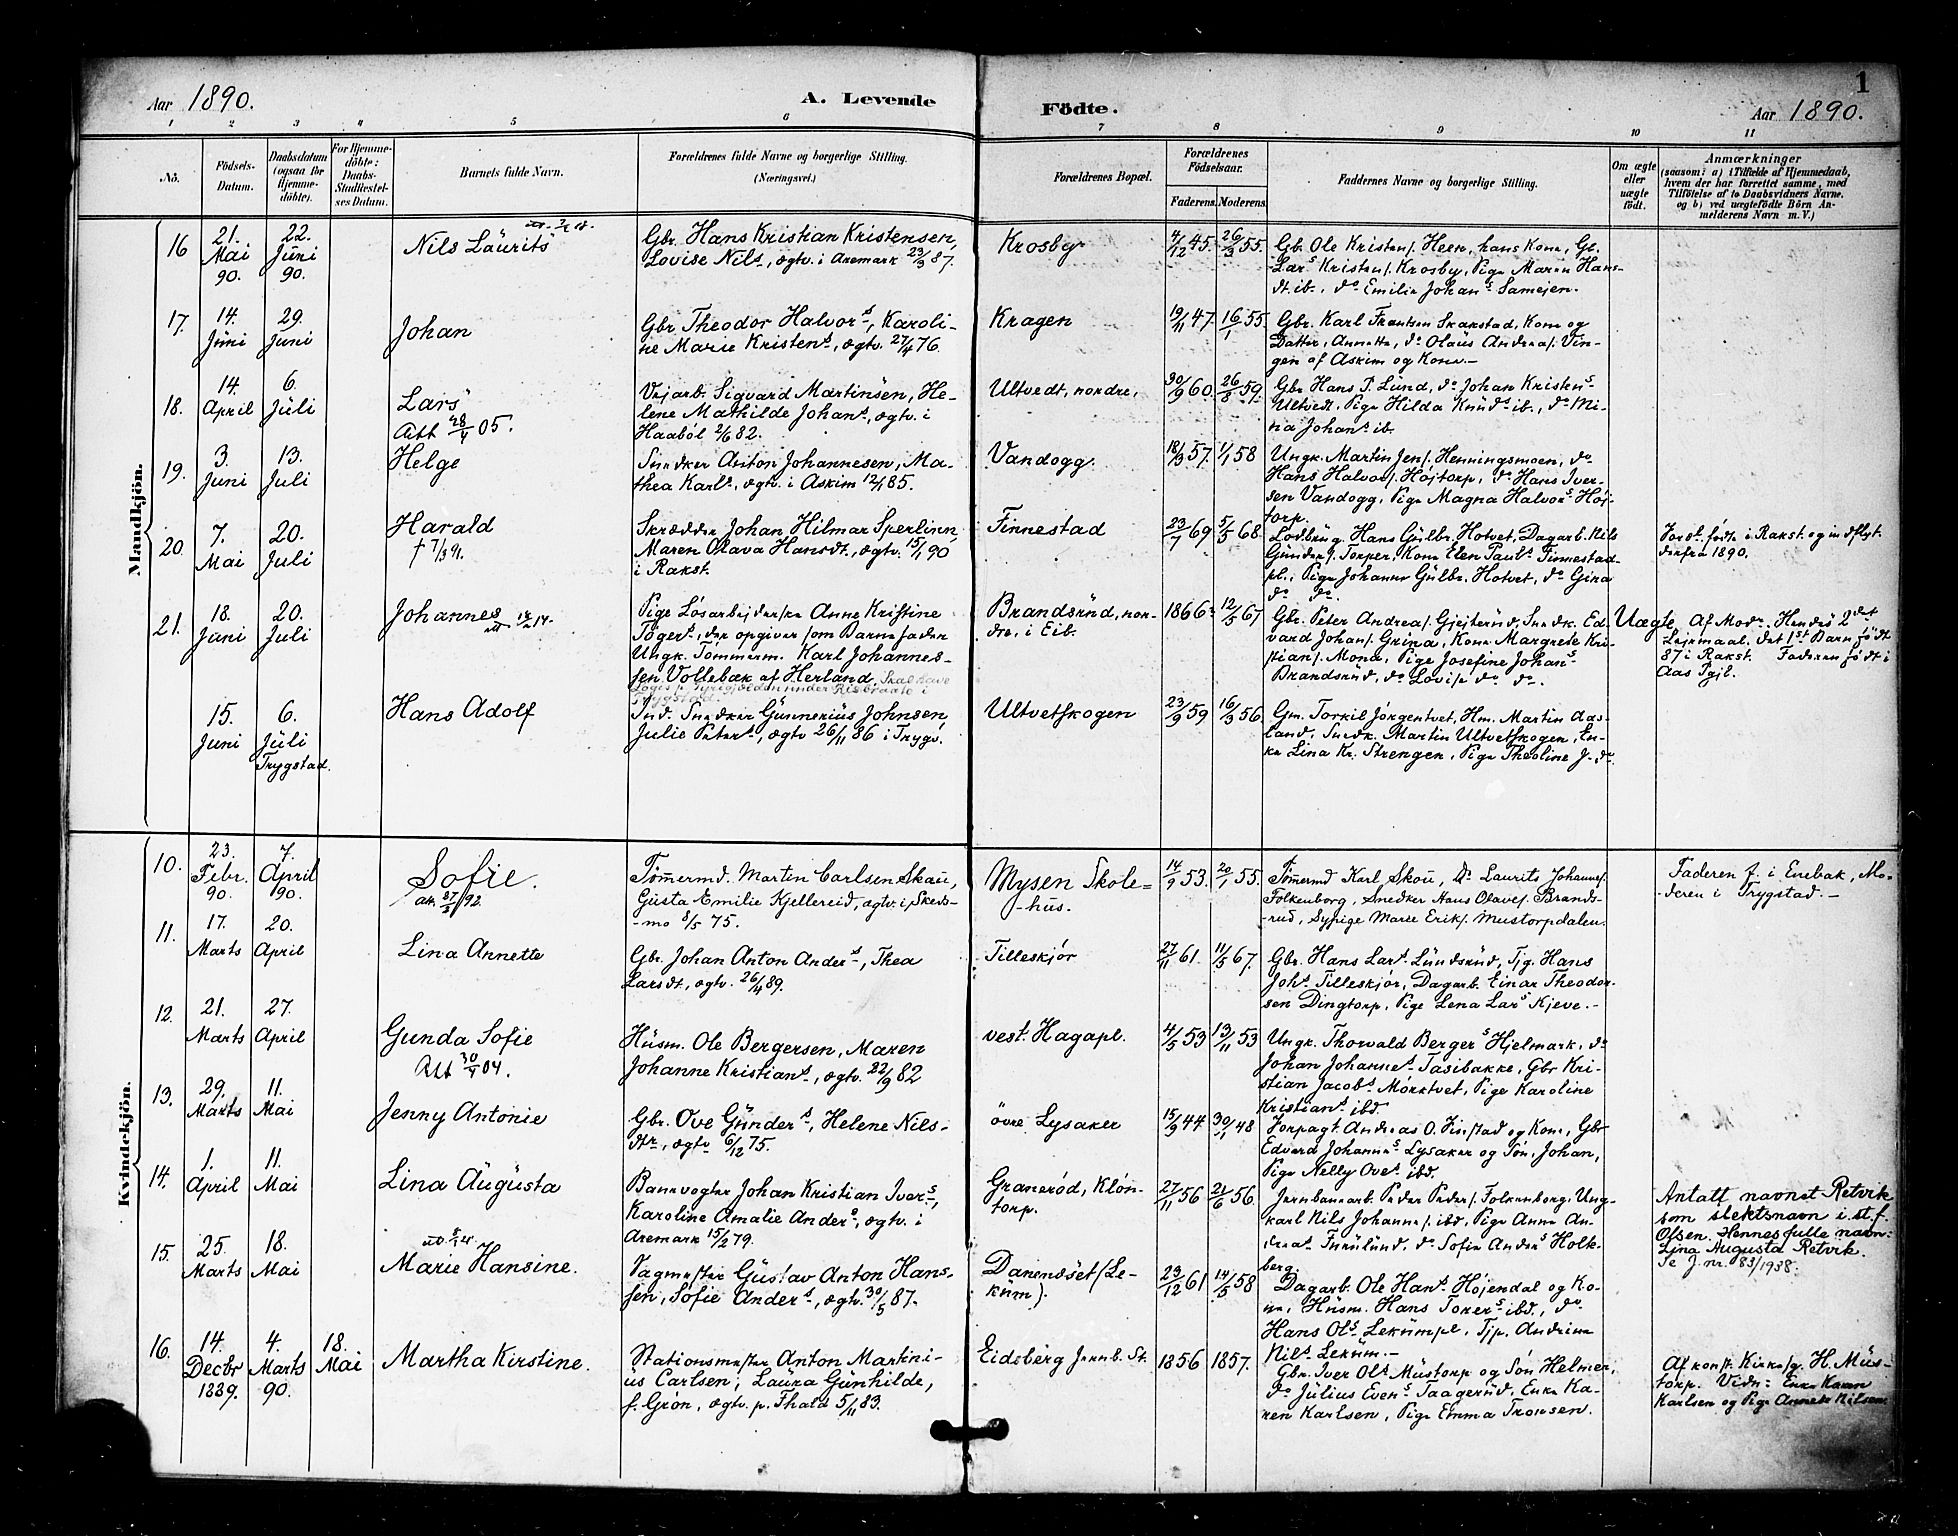 1
Aar 1890. A. Levende Födte. Aar 1890.
1 2 3 4 5 6 7 8 9 10 11
No. Födsels-Datum. Daabsdatum (ogsaa for Hjemme-döbte). For Hjemme-döbte: Daabs-Stadfæstel-ses Datum. Barnets fulde Navn. Forældrenes fulde Navne og borgerlige Stilling. (Næringsvei.) Forældrenes Bopæl. Forældrenes Födselsaar. Faderens. Moderens. Faddernes Navne og borgerlige Stilling. Om ægte eller uægte födt. Anmærkninger
(saasom: a) i Tilfælde af Hjemmedaab, hvem der har forrettet samme, med Tilföielse af to Daabsvidners Navne, og b) ved uægtefödte Börn An-melderens Navn m. V.)
Mandkjön.
16 21. Mai 90. 22. Juni 90. Nils Laurits
Gbr. Hans Kristian Kristensen,
Lovise Nils., ægtv. i Aremark 23/3 87.
Krosby 4/12 45. 26/3 55.
Gbr. Ole Kristens. Heen, hans Kone, Gbr.
Lars Kristens. Krosby, Pige Maren Hans-
dt. ib., do Emilie Johans Samejen.
17. 14. Juni 29. Juni Johan
Gbr Theodor Halvors, Karoli-
ne Marie Kristens, ægtv. 27/4 76.
Kragen 19/11 47. 16/1 55.
Gbr. Karl Frantsen Skakstad, Kone og
Datter, Annette, do Olaus Andreas. Vin-
gen af Askim og Kone.-
18. 14. April 6. Juli Lars
Att 28/4 05.
Vejarb. Sigvard Martinsen, He-
lene Mathilde Johans, ægtv. i
Haaböl 2/6 82.
Ultvedt, nordre, 30/9 60. 26/8 59.
Gbr Hans P. Lund, do Johan Kristens
Ultvedt, Pige Hilda Knuds ib., do Mi-
na Johans ib.
19. 3. Juni 13. Juli Helge
Snedker Anton Johannesen, Ma-
thea Karls, ægtv. i Askim 12/1 85.
Vandogg. 18/3 57. 1/1 58
Ungk. Martin Jens. Henningsmoen, do
Hans Halvors. Höjtorp, do Hans Iver-
sen Vandogg, Pige Magna Halvors Höj-
torp.
20. 7. Mai 20. Juli Harald
† 7/3 91.
Skrædder Johan Hilmar Sperlinn,
Maren Olava Hansdt. ægtv. 15/1 90
i Rakst.
Finnestad 23/7 69 5/5 68.
Lodbrug. Hans Gulbr. Hotvet, Dagarb. Nils
Gunders. Torper, Kone Elen Pauls Finnestad-
pl., Pige Johanne Gulbr. Hotvet, do Gina
do do.
Forst. födte i Rakst. og indflyt.
derfra 1890.
21. 18. Juni 20. Juli Johannes
Pige Lösarbejderske Anne Kristine
Tögers, der opgiver som Barnefader
Ungk. Tömmerm. Karl Johannes-
sen Vollebæk af Herland.
Brandsrud, nor-
dre, i Eib. 1866 12/5 67
Gbr. Peter Andreas. Gjejterud, Snedk. Ed-
vard Johans. Grina, Kone Margrete Kri-
stians. Mona, Pige Josefine Johans
Brandsrud, do Lovise do do.
Uægte. Af Modr. Hendes 2det
Lejermaal. Det 1st Barn födt
87 i Rakst. Faderen födt i
Aas Pgjl.
15. Juni 6. Juli Trygstad. Hans Adolf
Ind. Snedker Gunnerius Johnsen,
Julie Peters, ægtv 26/11 86 i Trygs.
Ultvetskogen 23/9 59 16/3 56.
Gm. Torkil Jörgentvet, Hm. Martin Aas-
land, Snedk. Martin Ultvetskogen, En-
ke Lina Kr. Strengen, Pige Theoline J. do
Kvindekjön.
10. 23. Febr. 90. 7. April 90. Sofie.
att. 21/3 92.
Tömermd. Martin Carlsen Skau,
Gusta Emilie Kjellereid, ægtv. i Skeds-
-mo 8/5 75.
Mysen Skole=
-hus. 14/9 53. 20/1 55.
Tömermd Karl Skou, do Laurits Johannes.
Folkenborg, Snedker Hans Olaves. Brands-
-rud, Sypige Marie Eriks. Mustorpdalen.
Faderen f. i Enebak, Mo-
deren i Trygstad.-
11. 17. Marts 20. April Lina Annette
Gbr. Johan Anton Anders, Thea
Larsdt, ægtv. 26/4 89.
Tilleskjör 27/11 61. 11/5 67.
Gbr. Hans Lars. Lundsrud, Tjg. Hans
Johs. Tilleskjör, Dagarb. Einar Theodor-
sen Dingtorp, Pige Lena Lars Kjeve.-
12. 21. Marts 27. April Gunda Sofie
Att 30/4 04.
Husm. Ole Bergersen, Maren
Johanne Kristians, ægtv. 22/9 82
vest. Hagapl. 4/5 53 13/11 53
Ungk. Thorvald Bergers Hjelmark, do
Johan Johannes Tasibakke, Gbr Kri-
stian Jacobs Mörktvet, Pige Karoline
Kristians ibd.
13. 29. Marts 11. Mai Jenny Antonie
Gbr. Ove Gunders, Helene Nils-
dtr, ægtv 6/12 75.
övre Lysaker 15/9 44 30/11 48
Forpagt. Andreas O. Finstad og Kone, Gbr
Edvard Johannes Lysaker og Sön, Johan,
Pige Nelly Oves ibd.
14. 1. April 11. Mai Lina Augusta
Banevogter Johan Kristian Ivers,
Karoline Amalie Anders, ægtv. i
Aremark 15/2 79.
Graneröd, Klön-
torp. 27/11 56 21/6 56.
Jernbanearb. Peder Peders. Folkenborg, Ung-
karl Nils Johannes. ibd, Pige Anna An-
dreas Furulund, do Sofie Anders Holk-
berg.
Antatt navnet Retvik
som slektsnavn i st. f.
Olsen. Hennes fulle navn:
Lina Augusta Retvik.
Se J.nr. 83/1938.
15. 25. Marts 18. Mai Marie Hansine.
Vagmester Gustav Anton Hans-
sen, Sofie Anders, ægtv. 30/5 87.
Danendset (Le-
kum). 23/12 61 14/5 58
Dagarb. Ole Hans Höjendal og Ko-
ne, Husm. Hans Tores ibd., do
Hans Ols Lekumpl., Tjp. Andrine
Nils. Lekum.-
16. 14. Decbr 1889. 4. Marts 90. 18. Mai Martha Kirstine.
Stationsmester Anton Martini-
us Carlsen, Laura Gunhilde,
f. Grön, ægtv. p. Thald 5/11 83.
Eidsberg Jernb. St. 1856 1857.
Gbr. Iver Ols Mustorp og Sön Helmer,
do Julius Evens Taagerud, Enke Ka-
ren Karlsen, Pige Emma Tronsen.
Af konst. Kirkesg. H. Mus-
torp. Vidn: Enke Karen
Karlsen og Pige Annette Nilsen.